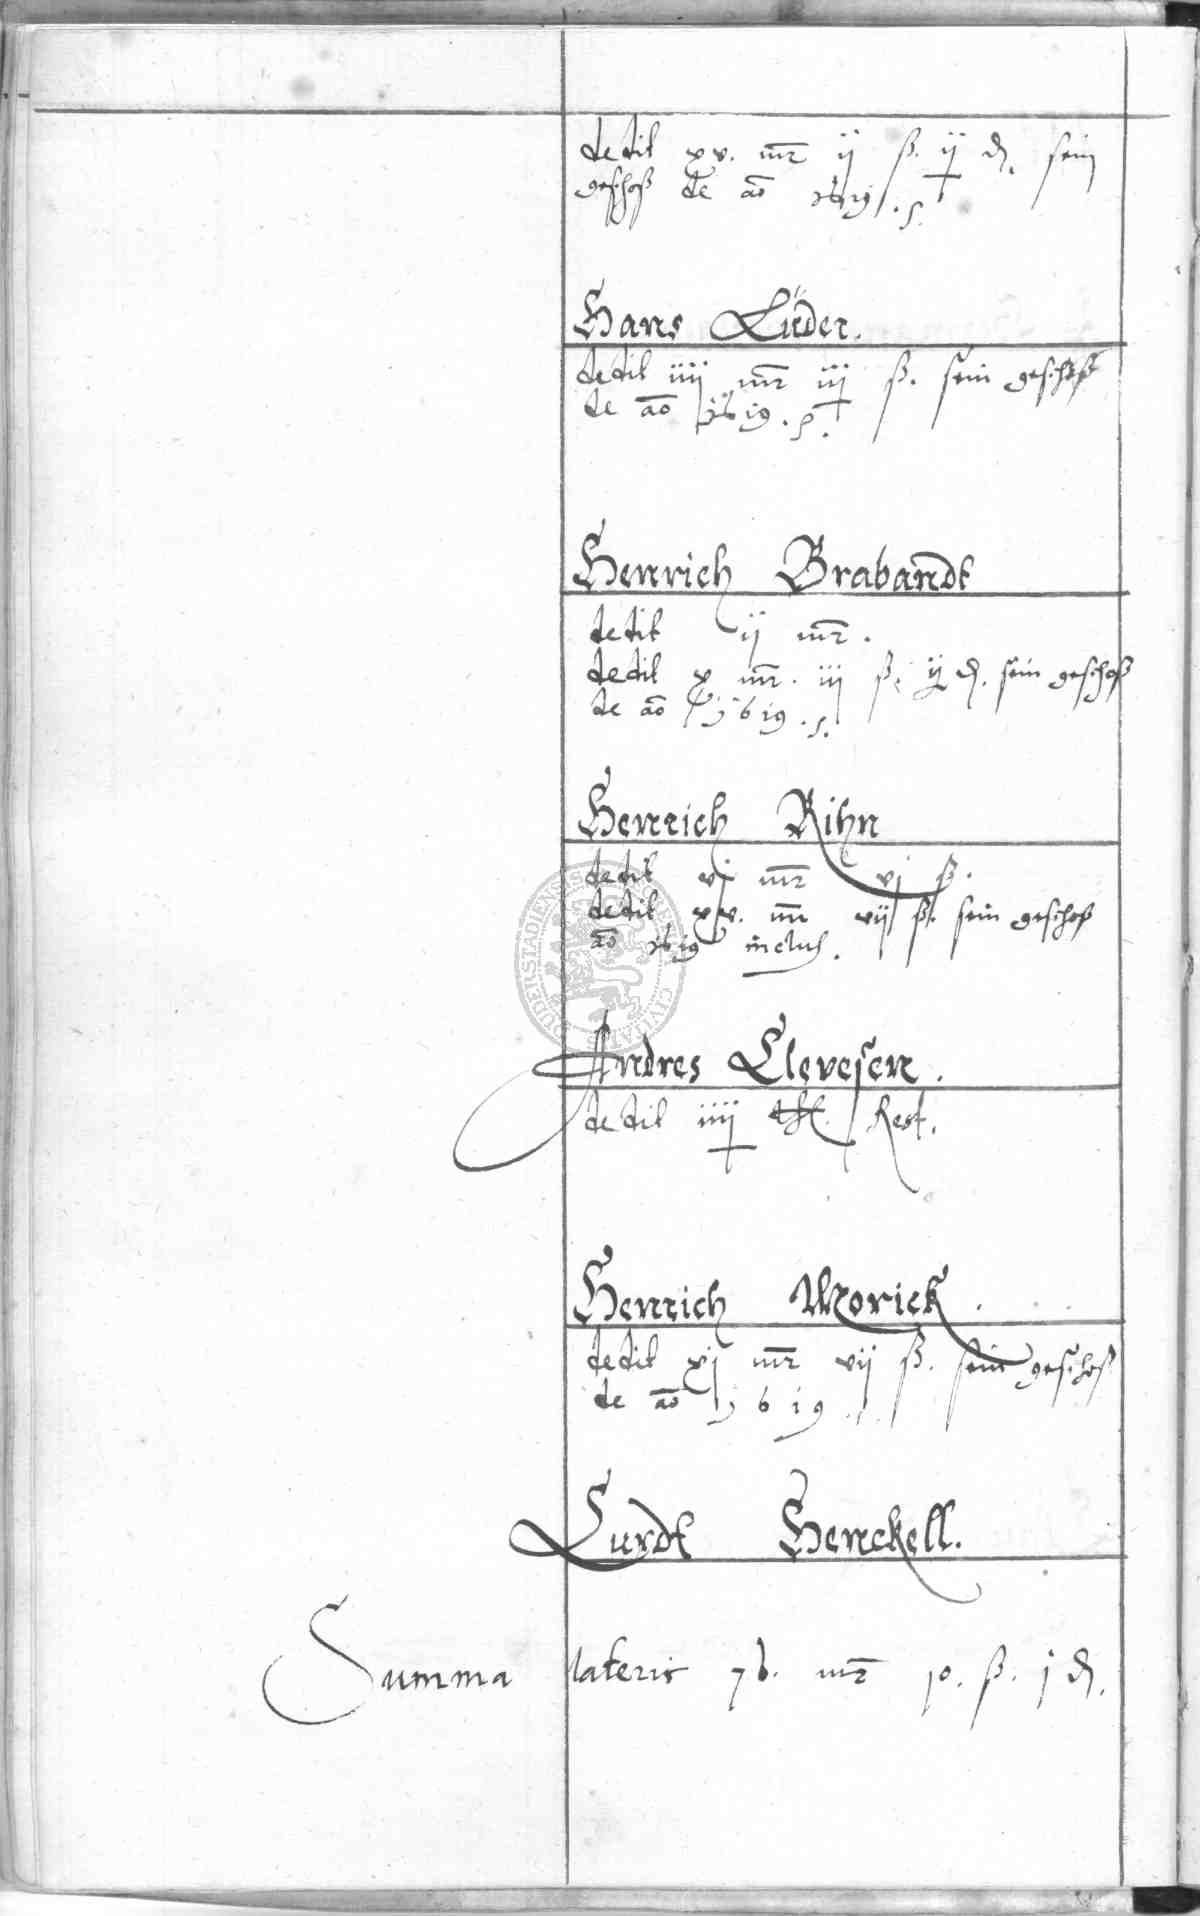 dedit xv. mr ij ß. ij d. sein
geschoß de ao 1619. s.
Hans Lüder.
dedit iiij mr iij ß. sein geschoß
de ao 1619. s.
Henrich Brabandt
dedit ij mr.
dedit x mr. iij ß. ij d. sein geschoß
de ao 1619. s.
Henrich Rihn
dedit vj mr vj ß.
dedit xv. mr vij ß. sein geschoß
ao 1619 inclus.
Andres Clevesen.
dedit iiij thl. Rest.
Henrich Morick.
dedit xj mr vij ß. sein geschoß
de ao 1619
Curdt Henckell.
Summa lateris 76. mr 10. ß. 1 d.
DUDERSTADIENSIS CIVITATIS